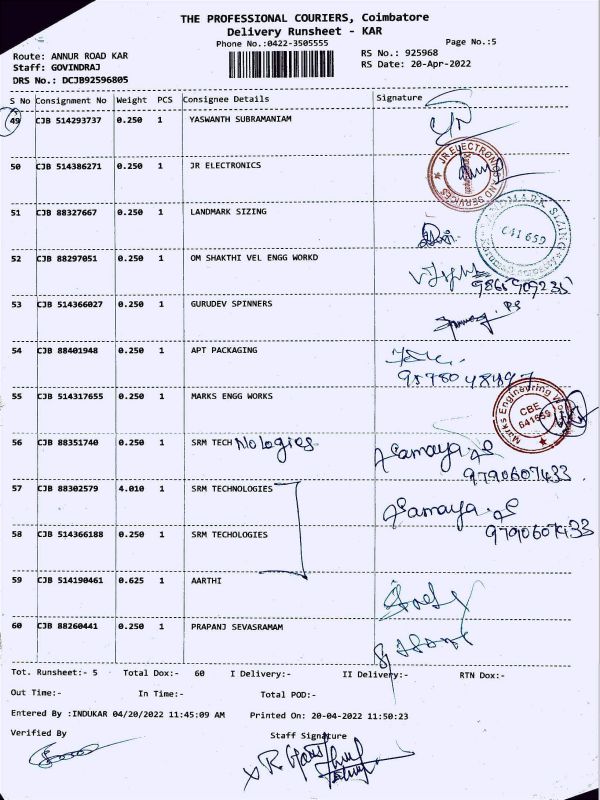 THE PROFESSIONAL COURIERS, Coimbatore
Delivery Runsheet - KAR
Phone No.:0422-3505555 Page No.:5
Route: ANNUR ROAD KAR RS No.: 925968
Staff: GOVINDRAJ RS Date: 20-Apr-2022
DRS No.: DCJB92596805
S No Consignment No Weight PCS Consignee Details Signature
49 CJB 514293737 0.250 1 YASWANTH SUBRAMANIAM
50 CJB 514386271 0.250 1 JR ELECTRONICS
JR ELECTRONICS AND SERVICES
51 CJB 88327667 0.250 1 LANDMARK SIZING
LANDMARK SIZING
641 659
52 CJB 88297051 0.250 1 OM SHAKTHI VEL ENGG WORKD
53 CJB 514366027 0.250 1 GURUDEV SPINNERS
54 CJB 88401948 0.250 1 APT PACKAGING
55 CJB 514317655 0.250 1 MARKS ENGG WORKS
Marks Engineering Works
CBE
641659
56 CJB 88351740 0.250 1 SRM TECH Nologies
9790607433
57 CJB 88302579 4.010 1 SRM TECHNOLOGIES
9790607433
58 CJB 514366188 0.250 1 SRM TECHOLOGIES
59 CJB 514190461 0.625 1 AARTHI
60 CJB 88260441 0.250 1 PRAPANJ SEVASRAMAM
Tot. Runsheet:- 5 Total Dox:- 60 I Delivery:- II Delivery:- RTN Dox:-
Out Time:- In Time:- Total POD:-
Entered By :INDUKAR 04/20/2022 11:45:09 AM Printed On: 20-04-2022 11:50:23
Verified By Staff Signature